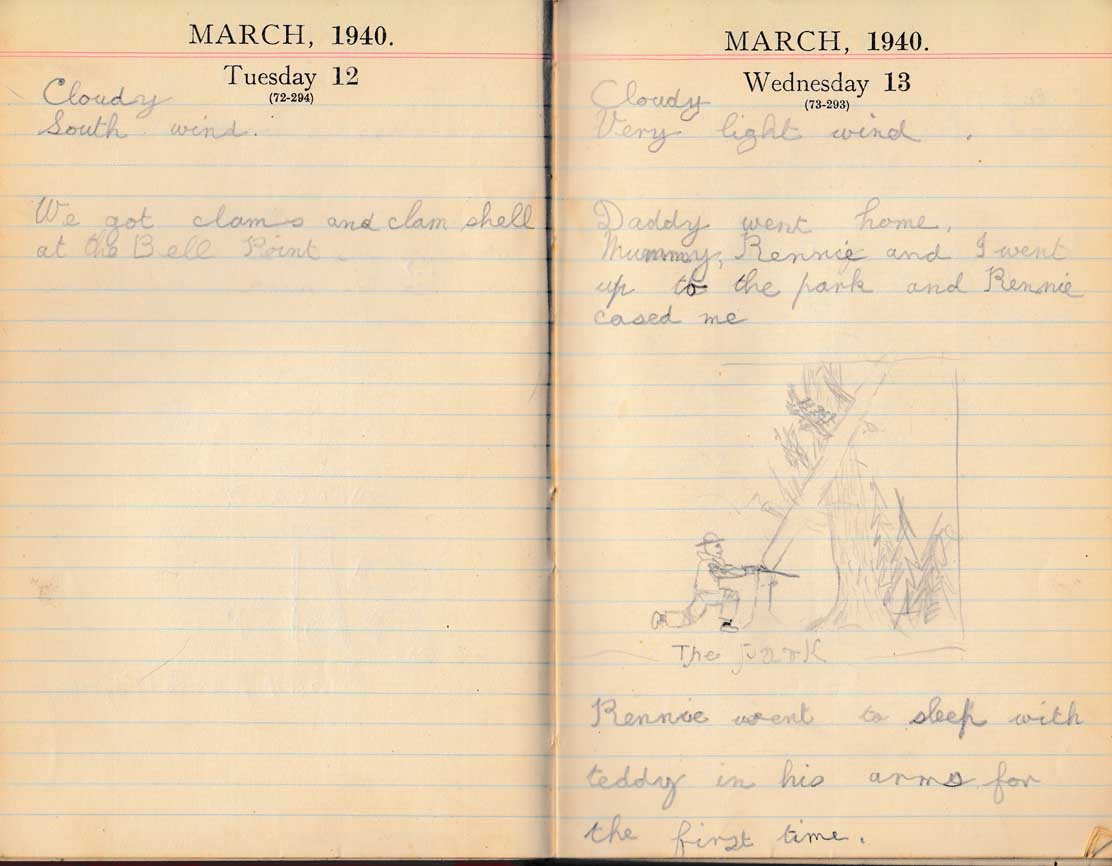 MARCH, 1940.
Tuesday 12
(72-294)
Cloudy
South wind.
We got clams and clam shell
at the Bell Point.
MARCH, 1940.
Wednesday 13
(73-293)
Cloudy
Very light wind.
Daddy went home.
Mummy, Rennie and I went
up to the park and Rennie
cased me
The park
Rennie went to sleep with
teddy in his arms for
the first time.